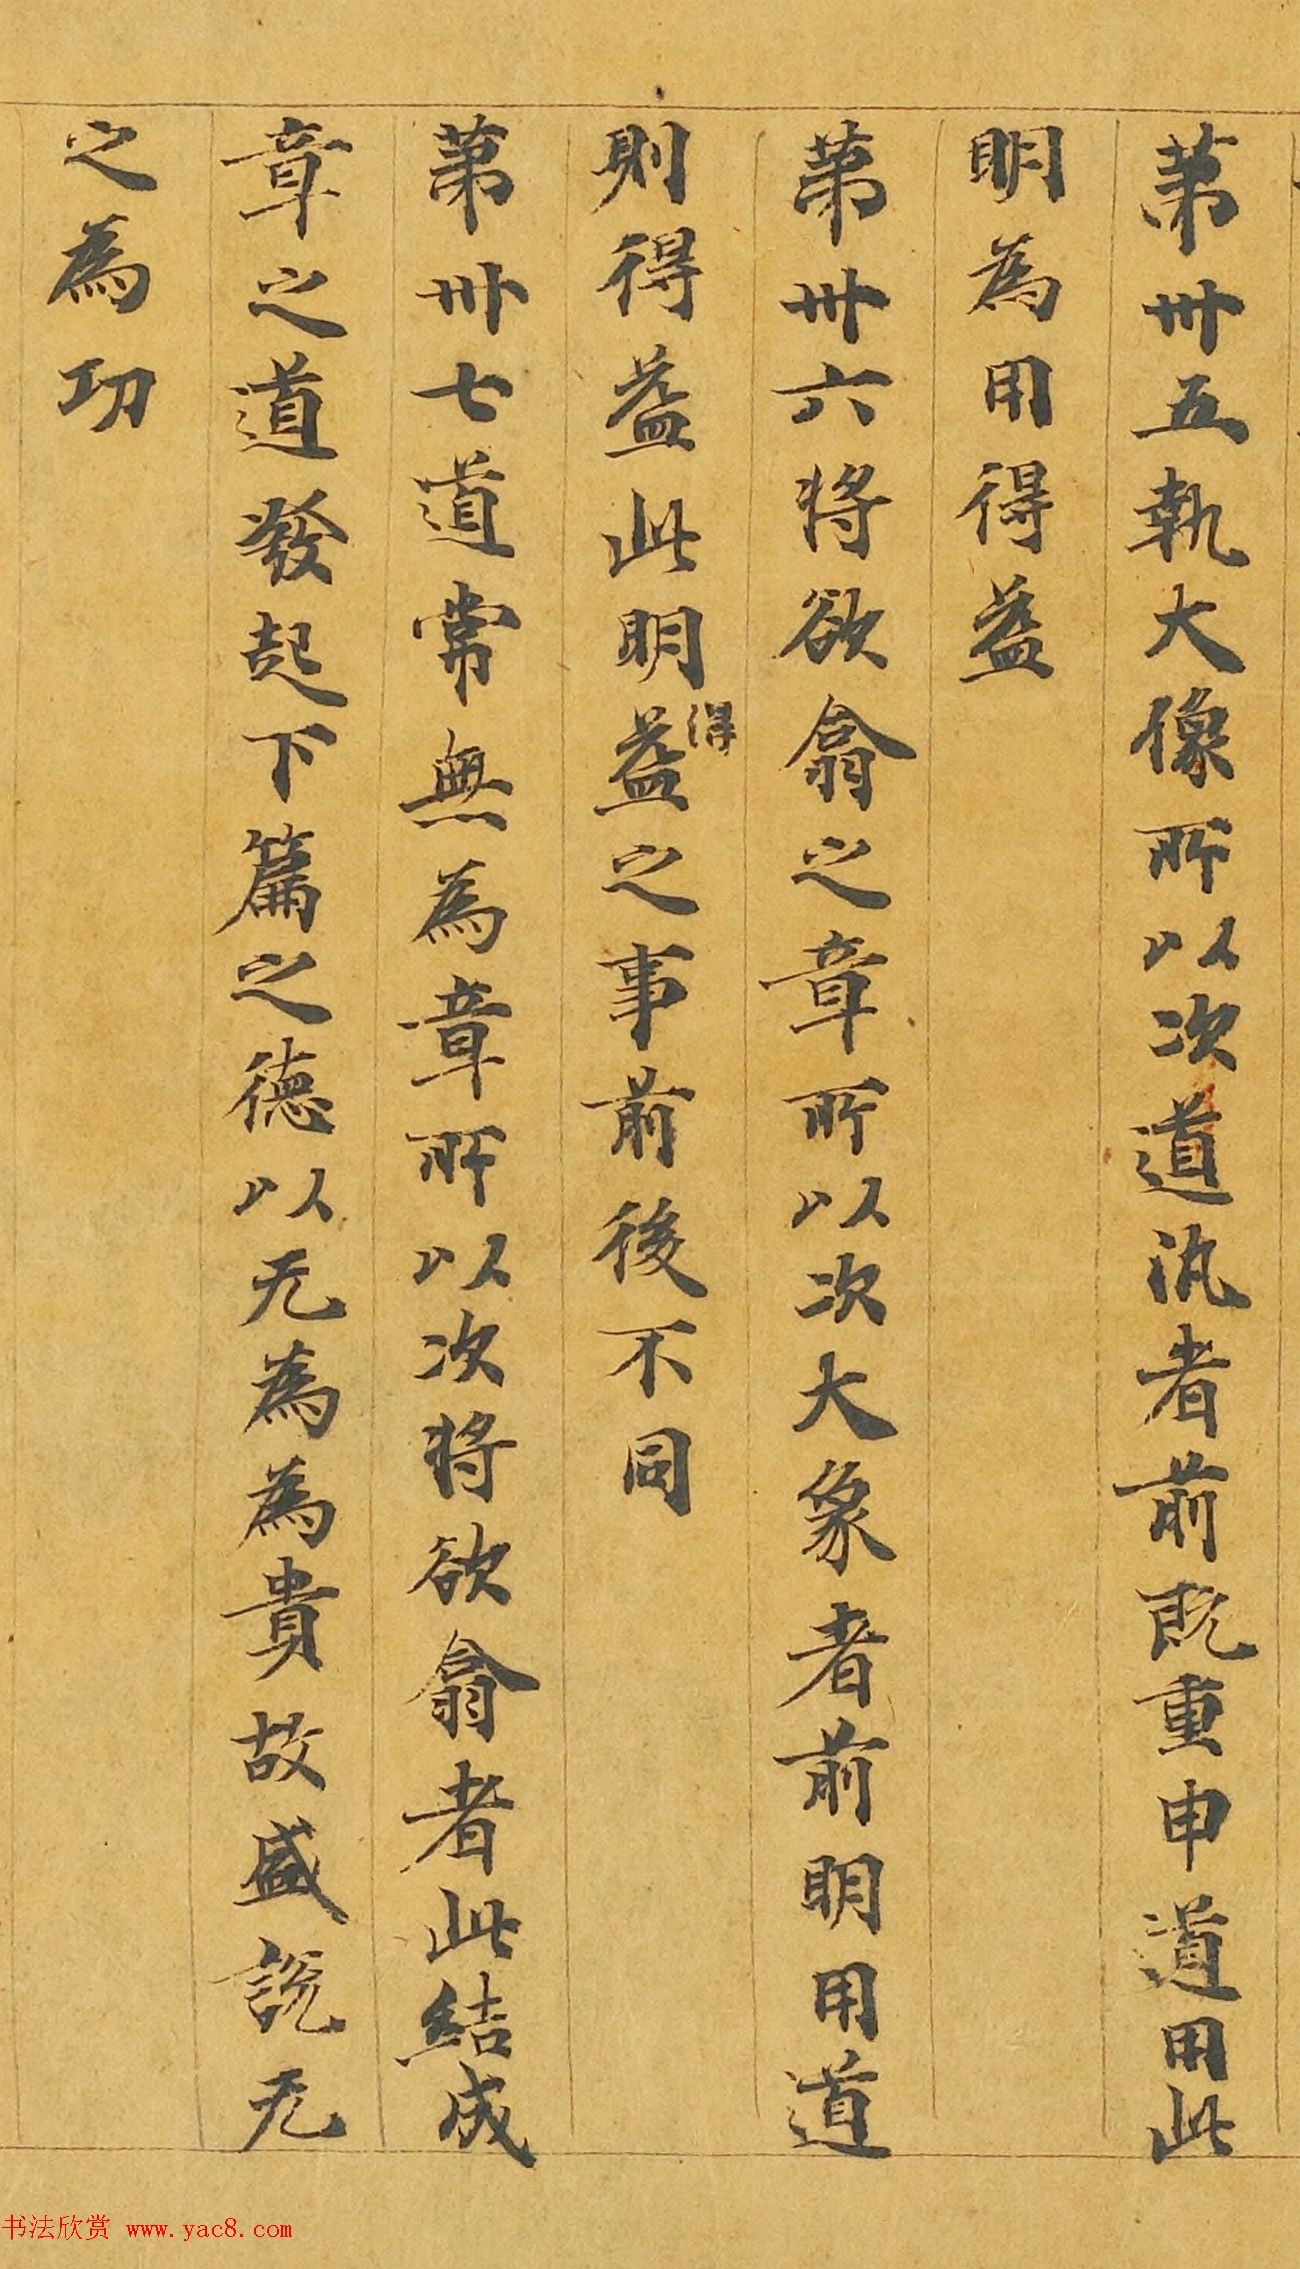 苐卅五執大像所以次道汎者前既重申道用此
明為用得益
苐卅六将欲翕之章所以次大象者前明用道
則得益此明得益之事前後不同
苐卅七道常無為章所以次将欲翕者此結成
章之道發起下篇之德以无為為貴故盛說无
之為功
书法欣赏 www.yac8.com